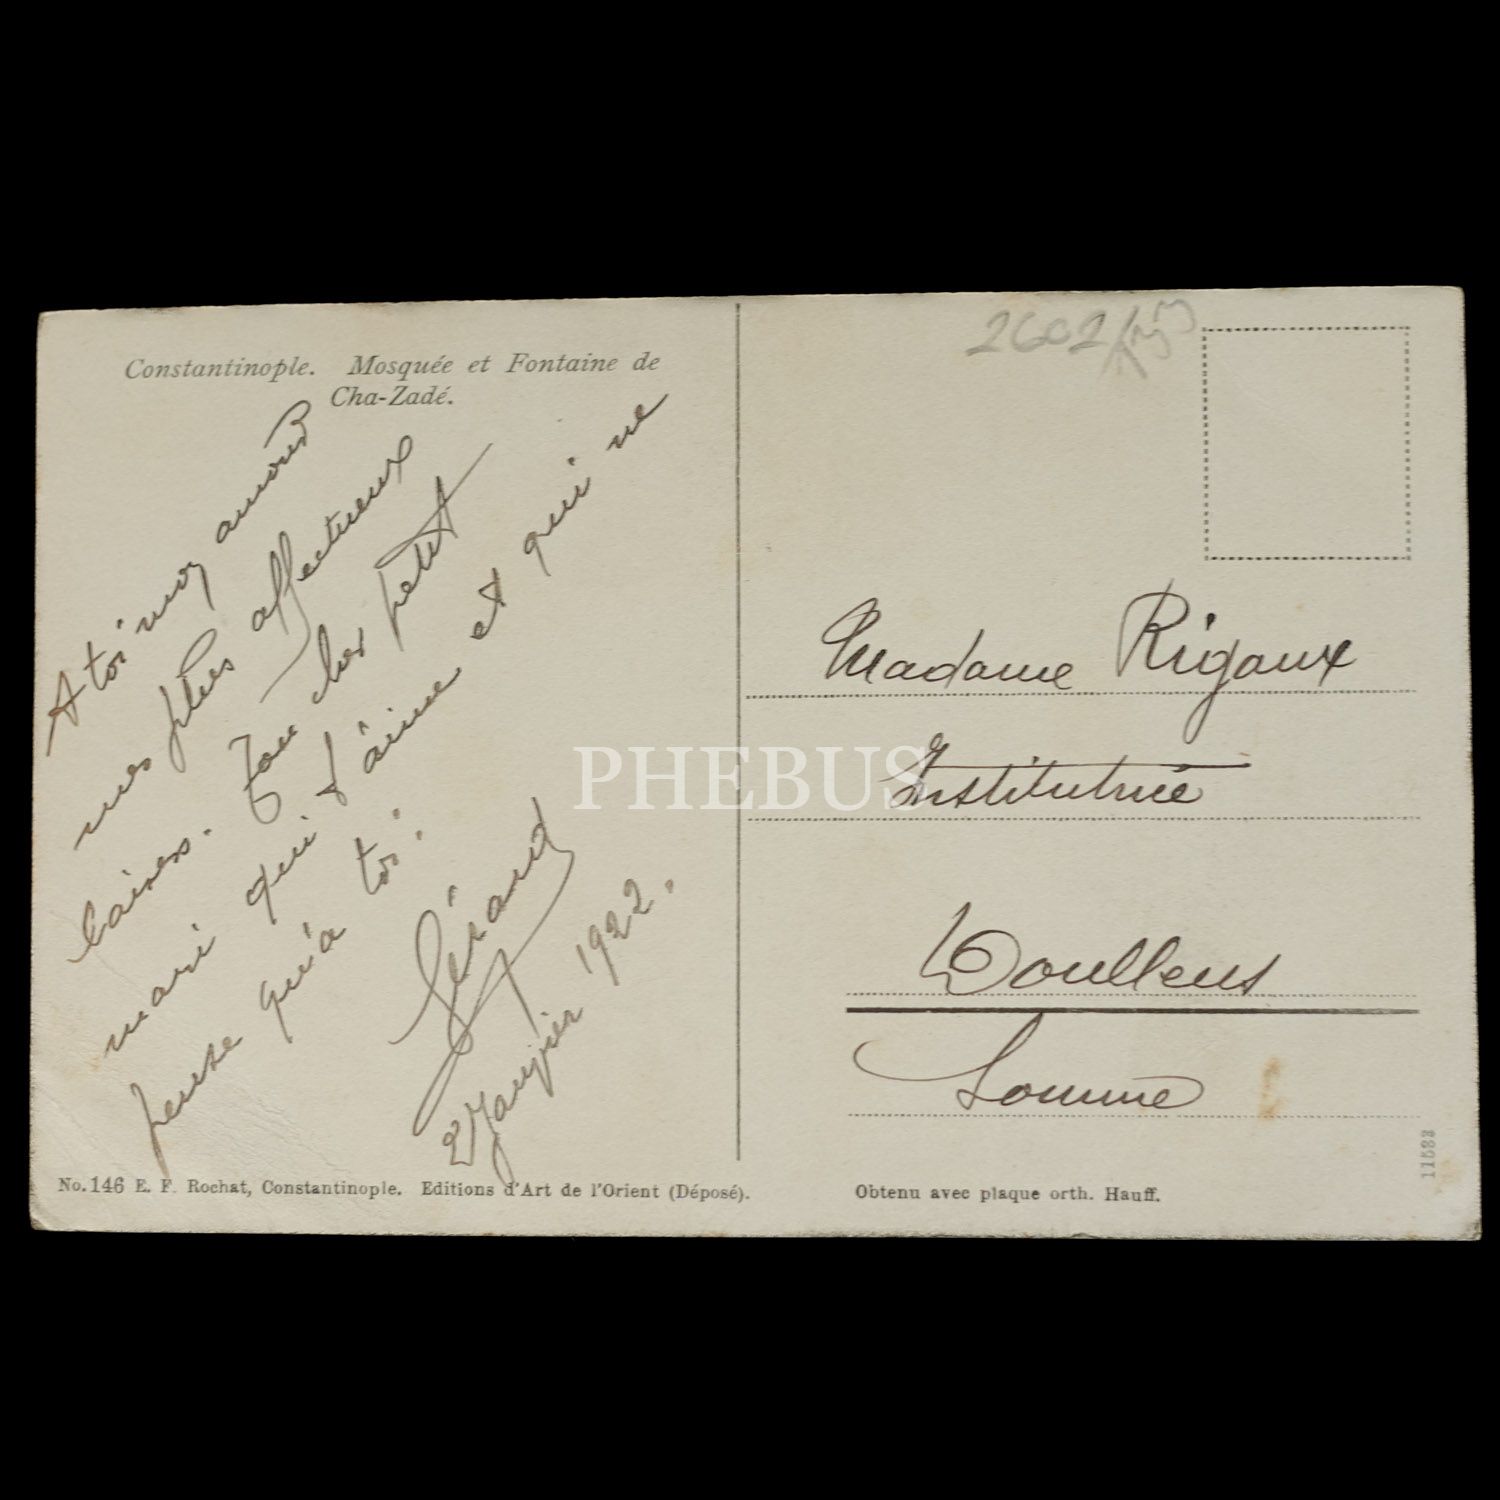 Constantinople. Mosquée et Fontaine de
Cha-Zadé.
A toi mon amour
mes plus affectueux
baisers. Ton cher petit
mari qui t'aime et qui ne
pense qu'à toi.
Gérard
2 Janvier 1922.
No. 146 E. F. Rochat, Constantinople. Editions d'Art de l'Orient (Déposé).
2602/
Madame Rigaux
Institutrice
Doullens
Somme
Obtenu avec plaque orth. Hauff.
11583
PHEBUS